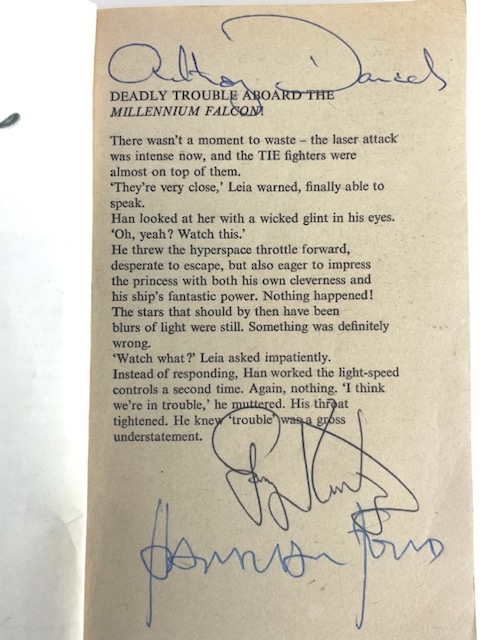 Anthony Daniels
DEADLY TROUBLE ABOARD THE
MILLENNIUM FALCON!
There wasn't a moment to waste – the laser attack
was intense now, and the TIE fighters were
almost on top of them.
'They're very close,' Leia warned, finally able to
speak.
Han looked at her with a wicked glint in his eyes.
'Oh, yeah? Watch this.'
He threw the hyperspace throttle forward,
desperate to escape, but also eager to impress
the princess with both his own cleverness and
his ship's fantastic power. Nothing happened!
The stars that should by then have been
blurs of light were still. Something was definitely
wrong.
'Watch what?' Leia asked impatiently.
Instead of responding, Han worked the light-speed
controls a second time. Again, nothing. 'I think
we're in trouble,' he muttered. His throat
tightened. He knew 'trouble' was a gross
understatement.